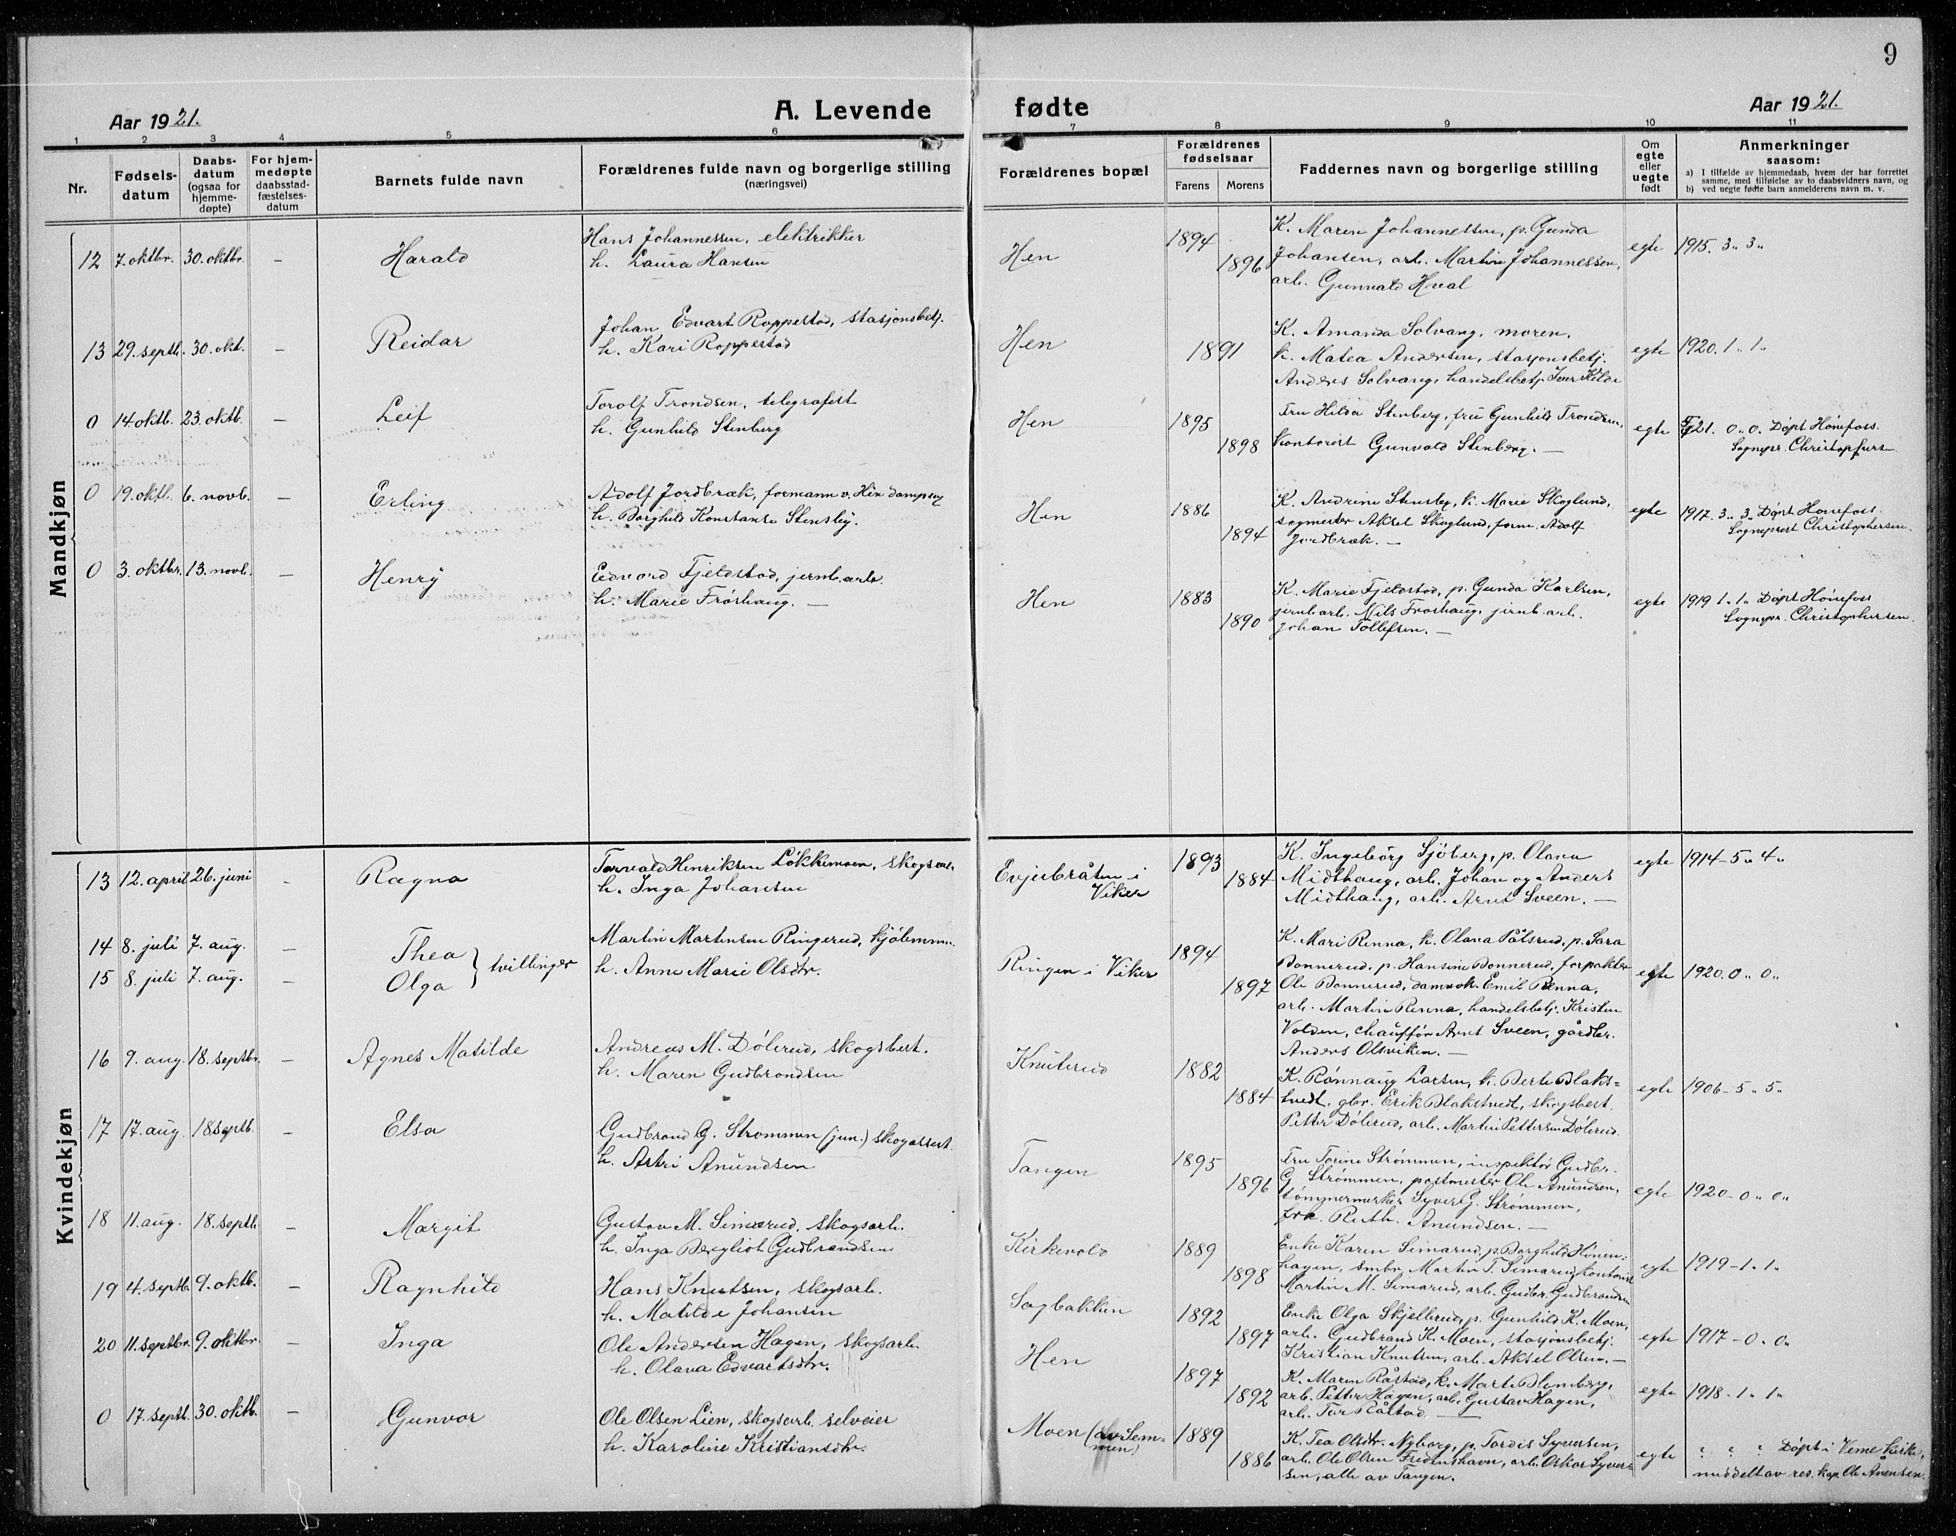 9
Aar 1921.
A. Levende fødte
Aar 1921.
1 2 3 4 5 6 7 8 9 10 11
Nr.
Fødsels-
datum
Daabs-
datum
(ogsaa for
hjemme-
døpte)
For hjem-
medøpte
daabsstad-
fæstelses-
datum
Barnets fulde navn
Forældrenes fulde navn og borgerlige stilling
(næringsvei)
Forældrenes bopæl
Forældrenes
fødselsaar
Farens Morens
Faddernes navn og borgerlige stilling
Om
egte
eller
uegte
født
Anmerkninger
saasom:
a) I tilfælde av hjemmedaab, hvem der har forrettet
samme, med tilføielse av to daabsvidners navn, og
b) ved uegte fødte barn anmelderens navn m. v.
Mandkjøn
12 7. oktbr. 30. oktbr. – Harald
Hans Johannessen, elektrikker
h. Laura Hansen
Hen
1894
1896
K. Maren Johannessen, p. Gunda
Johansen, arb. Martin Johannessen,
arb. Gunvald Hval
egte 1915. 3„ 3„
13 29. septb. 30. okt. – Reidar
Johan Edvart Roppestad, stasjonsbetj.
h. Kari Roppestad
Hen
1891
K. Amanda Solvang, moren,
k. Matea Andersen, stasjonsbetj.
Anders Solvang, handelsbetj. Iver Kilde
egte 1920. 1„ 1„
0 14 oktb. 23. oktb. – Leif
Torolf Trondsen, telegrafist
h. Gunhild Stenberg
Hen
1895
1898
Fru Hilda Stenberg, fru Gunhild Trondsen,
Kontorist Gunvald Stenberg. –
egte 21. 0„ 0. Døpt Hønefoss.
Sognepr. Christophersen
0 19. oktb. 6. novb. – Erling
Adolf Jordbræk, formann v. Hen dampsag
h. Borghild Konstanse Stensby.
Hen
1886
1894
K. Andrine Stensby, k. Marie Skoglund,
sagmester Aksel Skoglund, form. Adolf
Jordbræk. –
egte 1917. 3„ 3„ Døpt Hønefoss
Sogneprest Christophersen.
0 3. oktbr. 13. novb. – Henry
Edvard Fjeldstad, jernb.arb.
h. Marie Frøshaug. –
Hen
1883
1890
K. Marie Fjeldstad, p. Gunda Karlsen,
jernb.arb. Nils Frøshaug, jernb. arb.
Johan Tollefsen. –
egte 1919 1„ 1„ Døpt Hønefoss
Sognepr. Christophersen.
Kvindekjøn
13 12. april 26. juni – Ragna
Torvald Henriksen Løkkemoen, skogsarb.
h. Inga Johansen
Evjebråten i
Viker
1893
1884
K. Ingeborg Sjøberg, p. Olava
Midthaug, arb. Johan og Anders
Midthaug, arb. Arnt Sveen. –
egte 1914 – 5„ 4„
14 8. juli 7. aug. – Thea
15 8. juli 7. aug. Olga } tvillinger
Martin Martinsen Ringerud,
h. Anne Marie Olsdtr.
Ringen i Viker
1894
1897
K. Mari Renna, k. Olava Pålsrud, p. Sara
Bonnerud, p. Hansine Bonnerud, forpakter
Ole Bonnerud, damvok. Emil Renna,
arb. Martin Renna, handelsbetj. Kristen
Volden, chauffør Arnt Sveen, gårdbr.
Anders Olsviken. –
egte 1920. 0„ 0„
16 9. aug. 18. septbr. – Agnes Matilde
Andreas M. Dølerud, skogsbest.
h. Maren Gudbrandsen
Knuterud
1882
1884
K. Rønnaug Larsen, k. Berte Blaks-
tvedt, gbr. Erik Blakstvedt, skogsbest.
Petter Dølerud, arb. Martin Pettersen Dølerud.
egte 1906 – 5„ 5„
17 17. aug. 18 septb. – Elsa
Gudbrand G. Strømmen (jun.) skogassist.
h. Astri Anundsen
Tangen
1895
1896
Fru Torine Strømmen, inspektør Gudbr.
G. Strømmen, postmester Ole Anundsen,
tømmermerker Syver G. Strømmen,
frk. Ruth. Anundsen. –
egte 1920 – 0„ 0„
18 11. aug. 18. septb. – Margit
Gustav M. Simarud, skogsarb.
h. Inga Bergliot Gudbrandsen
Kirkevold
1889
1898
Enke Karen Simarud, p. Borghild Hønen-
hagen, smbr. Martin T. Simarud, kontorist
Martin M. Simarud, arb. Gudbr. Gudbrandsen
egte 1919 – 1„ 1„
19 4. septb. 9. oktb. – Ragnhild
Hans Knutsen, skogsarb.
h. Matilde Johansen
Sagbakken
1892
1897
Enke Olga Skjellerud, p. Gunhild K. Moen,
arb. Gudbrand K. Moen, stasjonsbetj.
Kristian Knutsen, arb. Aksel Olsen. –
egte 1917 – 0„ 0„
20 11. septbr. 9. oktbr. – Inga
Ole Andersen Hagen, skogsarb.
h. Olava Edvartsdtr.
Hen
1897
1892
K. Maren Råstad, k. Marte Blomberg,
arb. Petter Hagen, arb. Gustav Hagen,
arb. Tor Råstad. –
egte 1918 – 1„ 1„
0 17. septb. 30. oktb. – Gunvor
Ole Olsen Lien, skogsarb. selveier
h. Karoline Kristiansdtr.
Moen (av Sem-
men)
1889
1886
K. Tea Olsdtr. Nyborg, p. Tordis Syversen,
arb. Ole Olsen Fredenshavn, arb. Oskar Syver-
sen, alle av Tangen.
egte ? ? ? Døpt i Veme kirke,
meddelt av res. kap. Ole Anensen.